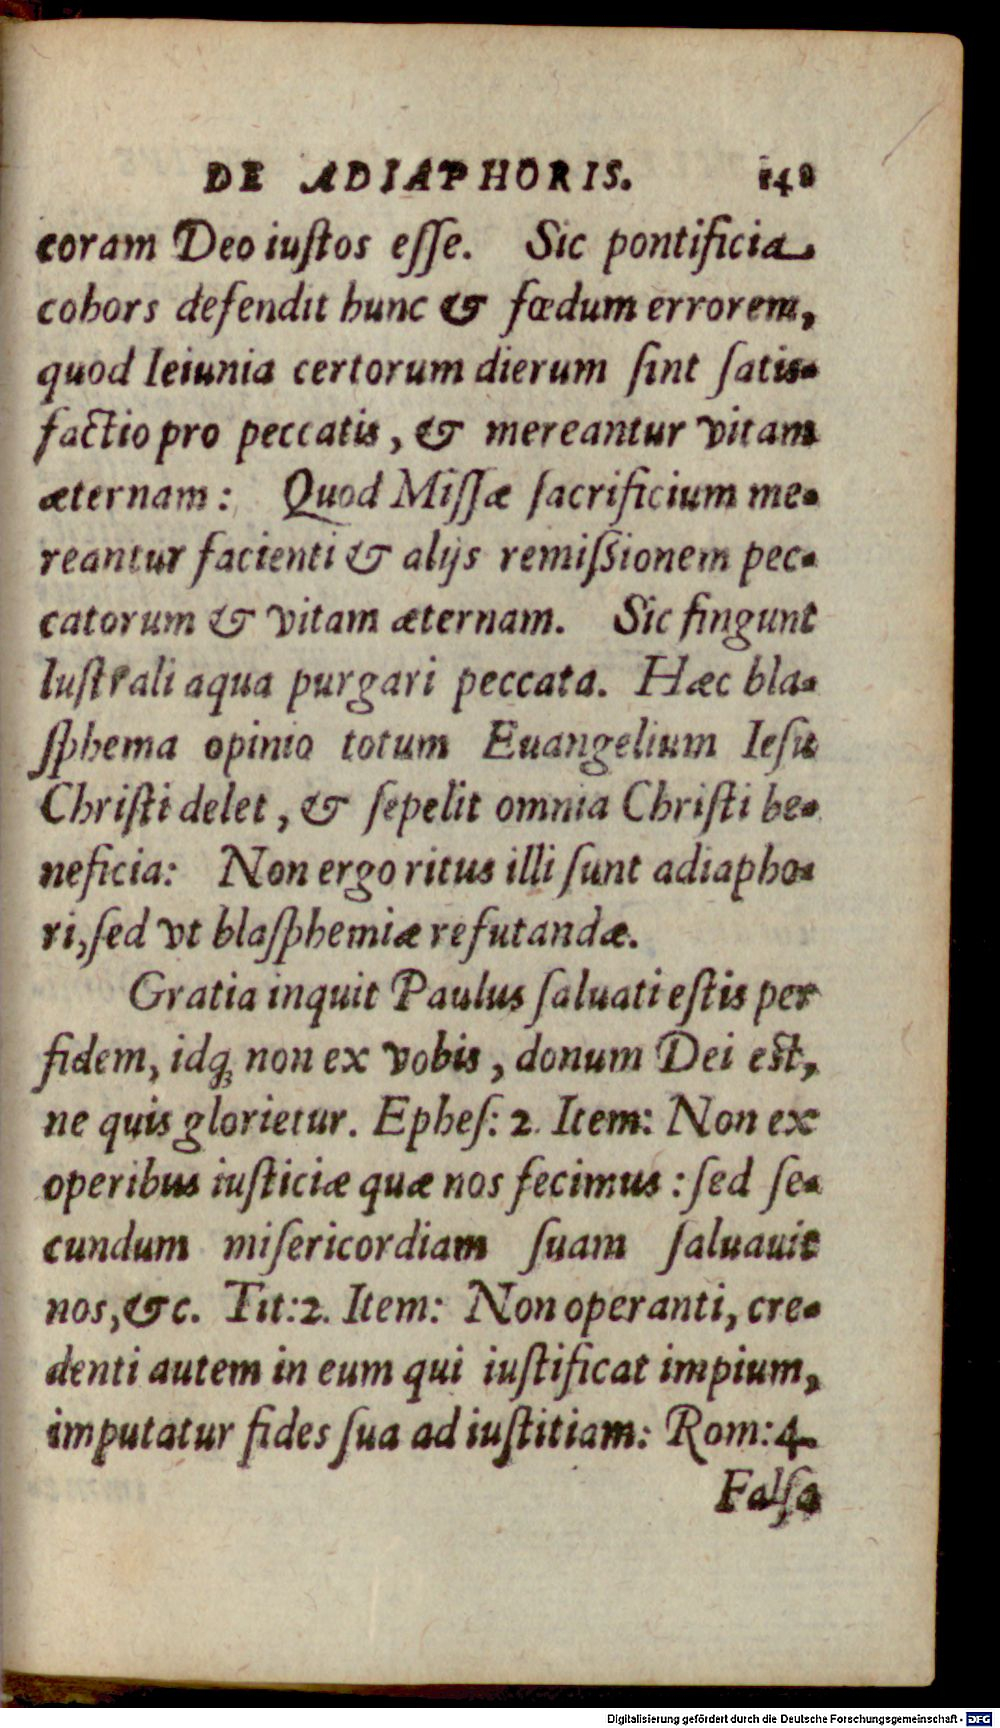 DE ADIAPHORIS. 148
coram Deo iuſtos eſſe. Sic pontificia
cohors defendit hunc & fœdum errorem,
quod Ieiunia certorum dierum ſint ſatis-
factio pro peccatis, & mereantur vitam
æternam: Quod Miſſæ ſacrificium me-
reantur facienti & alijs remiſsionem pec-
catorum & vitam æternam. Sic fingunt
luſtrali aqua purgari peccata. Hæc bla-
ſphema opinio totum Euangelium Ieſu
Chriſti delet, & ſepelit omnia Chriſti be-
neficia: Non ergo ritus illi ſunt adiapho-
ri, ſed vt blaſphemiæ refutandæ.
Gratia inquit Paulus ſaluati eſtis per
fidem, idq; non ex vobis, donum Dei eſt,
ne quis glorietur. Epheſ: 2. Item: Non ex
operibus iuſticiæ quæ nos fecimus: ſed ſe-
cundum miſericordiam ſuam ſaluauit
nos, &c. Tit: 2. Item: Non operanti, cre-
denti autem in eum qui iuſtificat impium,
imputatur fides ſua ad iuſtitiam: Rom: 4.
Falſa
Digitalisierung gefördert durch die Deutsche Forschungsgemeinschaft - DFG